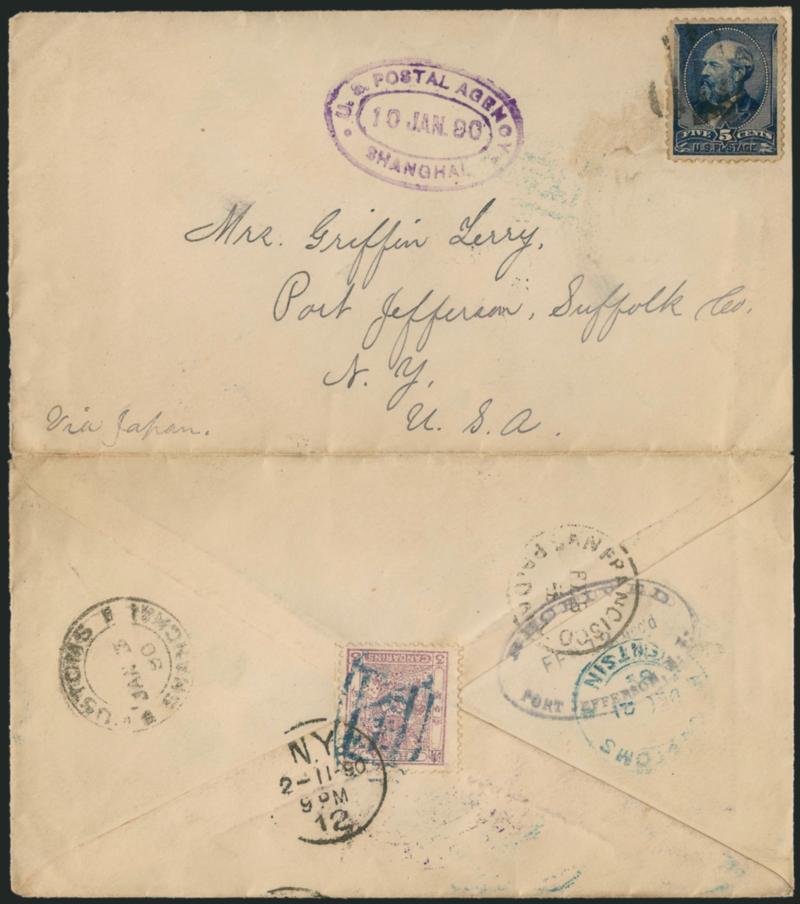 U. S. POSTAL AGENCY
10 JAN. 90
SHANGHAI
FIVE 5 CENTS
U.S. POSTAGE
Mrs. Griffin Terry,
Port Jefferson, Suffolk Co.
N. Y.
U. S. A.
Via Japan.
SAN FRANCISCO
PAID
SHANGHAI
CUSTOMS
JAN
90
3 CANDARINS
RECEIVED
PORT JEFFERSON
CUSTOMS
TIENTSIN
DEC
21
N.Y.
2-11-90
9 PM
12